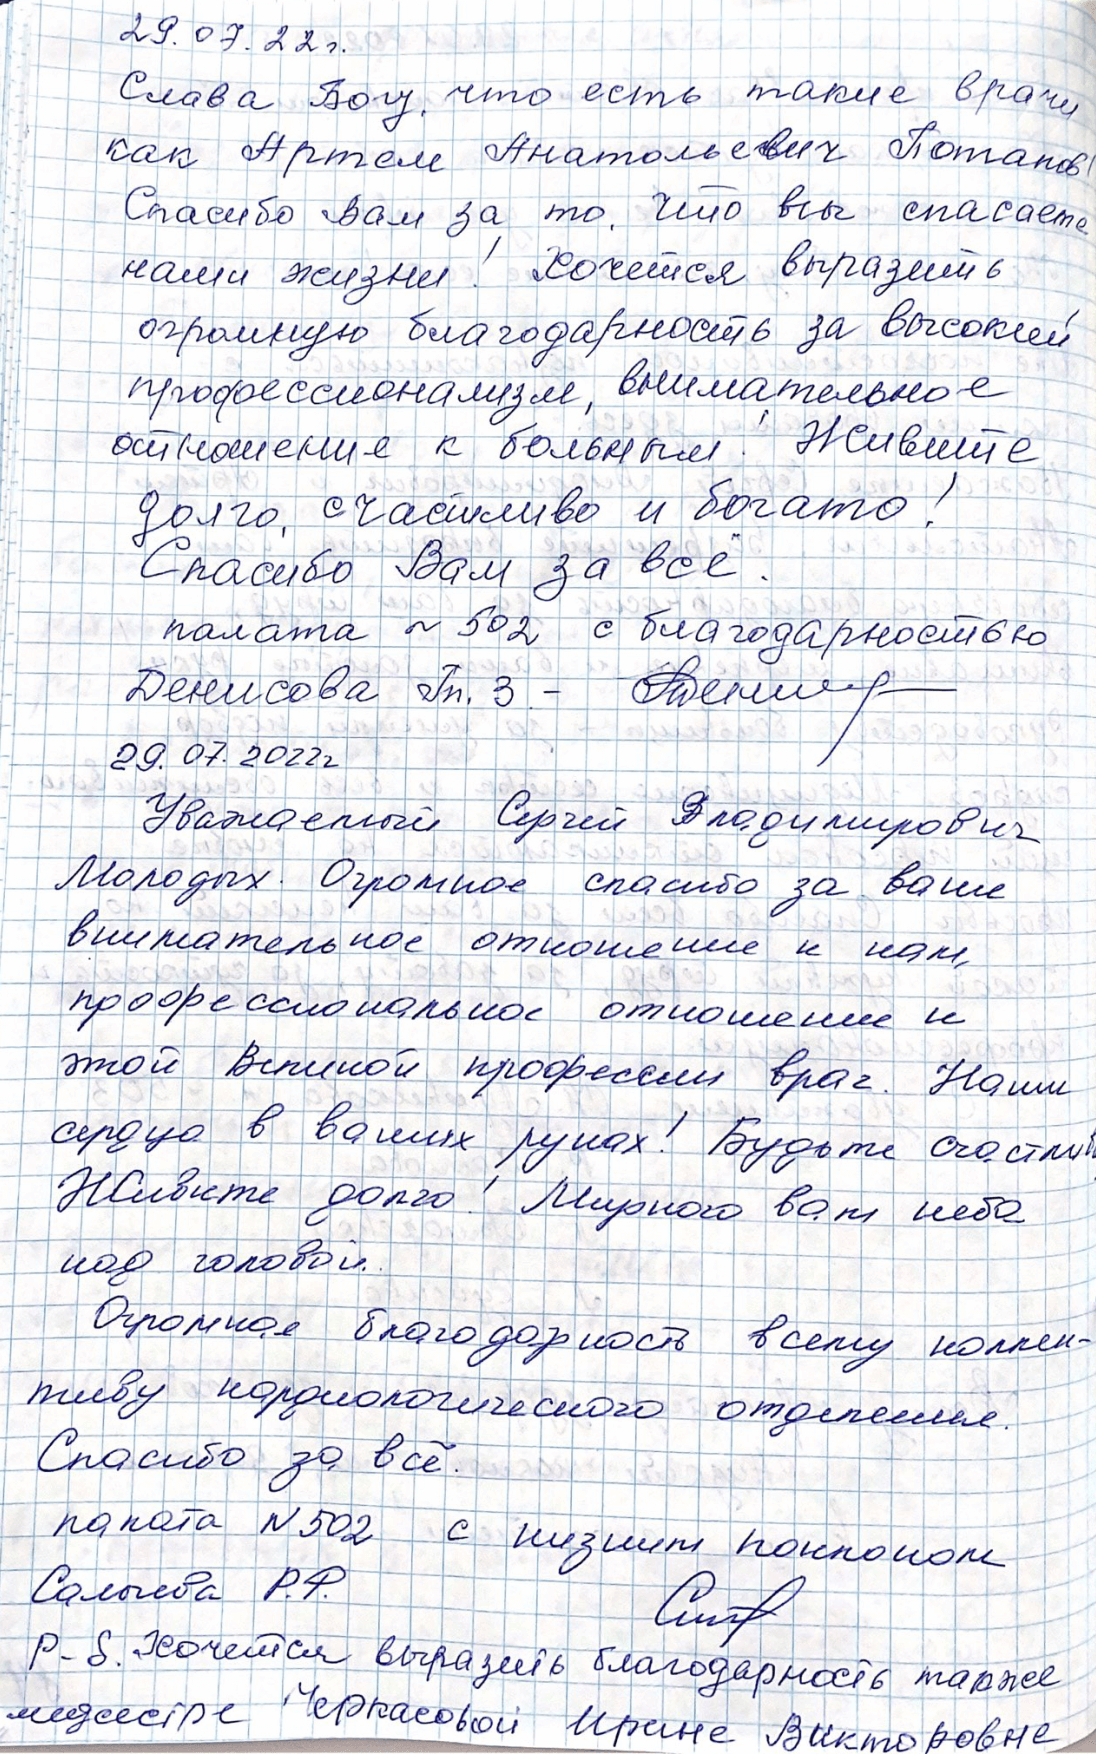 29.07.22г.
Слава Богу, что есть такие врачи
как Артем Анатольевич Потапов!
Спасибо Вам за то, что вы спасаете
наши жизни! Хочется выразить
огромную благодарность за высокий
профессионализм, внимательное
отношение к больным! Живите
долго, счастливо и богато!
Спасибо Вам за всё.
палата N 502 с благодарностью
Денисова Гп. З –
29.07.2022г
Уважаемый Сергей Владимирович
Молодых. Огромное спасибо за ваше
внимательное отношение к нам,
профессиональное отношение к
этой Великой профессии врач. Наши
сердца в ваших руках! Будьте
Живите долго! Мирного вам неба
над головой.
Огромная благодарность всему коллек-
тиву кардиологического отделения.
Спасибо за всё.
палата N 502 с низким поклоном
Р.Ф.
P-S. Хочется выразить благодарность также
медсестре Черкасовой Ирине Викторовне